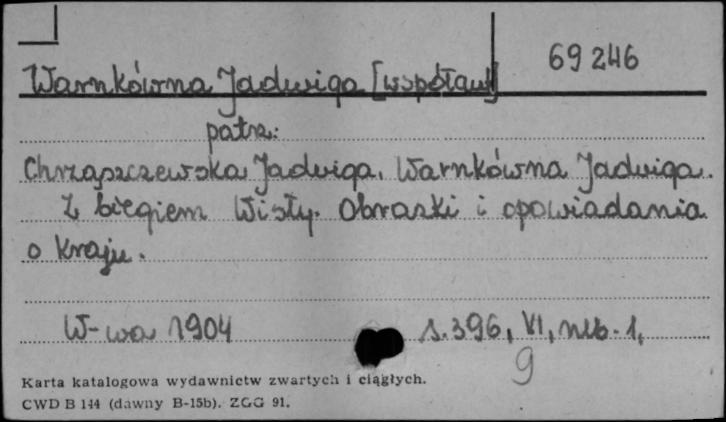 69246
Warnkówna Jadwiga [współaut]
patrz:
Chrząszczewska Jadwiga, Warnkówna Jadwiga.
Z biegiem Wisły. Obrazki i opowiadania
o kraju.
W-wa 1904 s. 396, VI, nlb. 1,
9
Karta katalogowa wydawnictw zwartych i ciągłych.
CWD B 144 (dawny B-15b). ZGG 91.